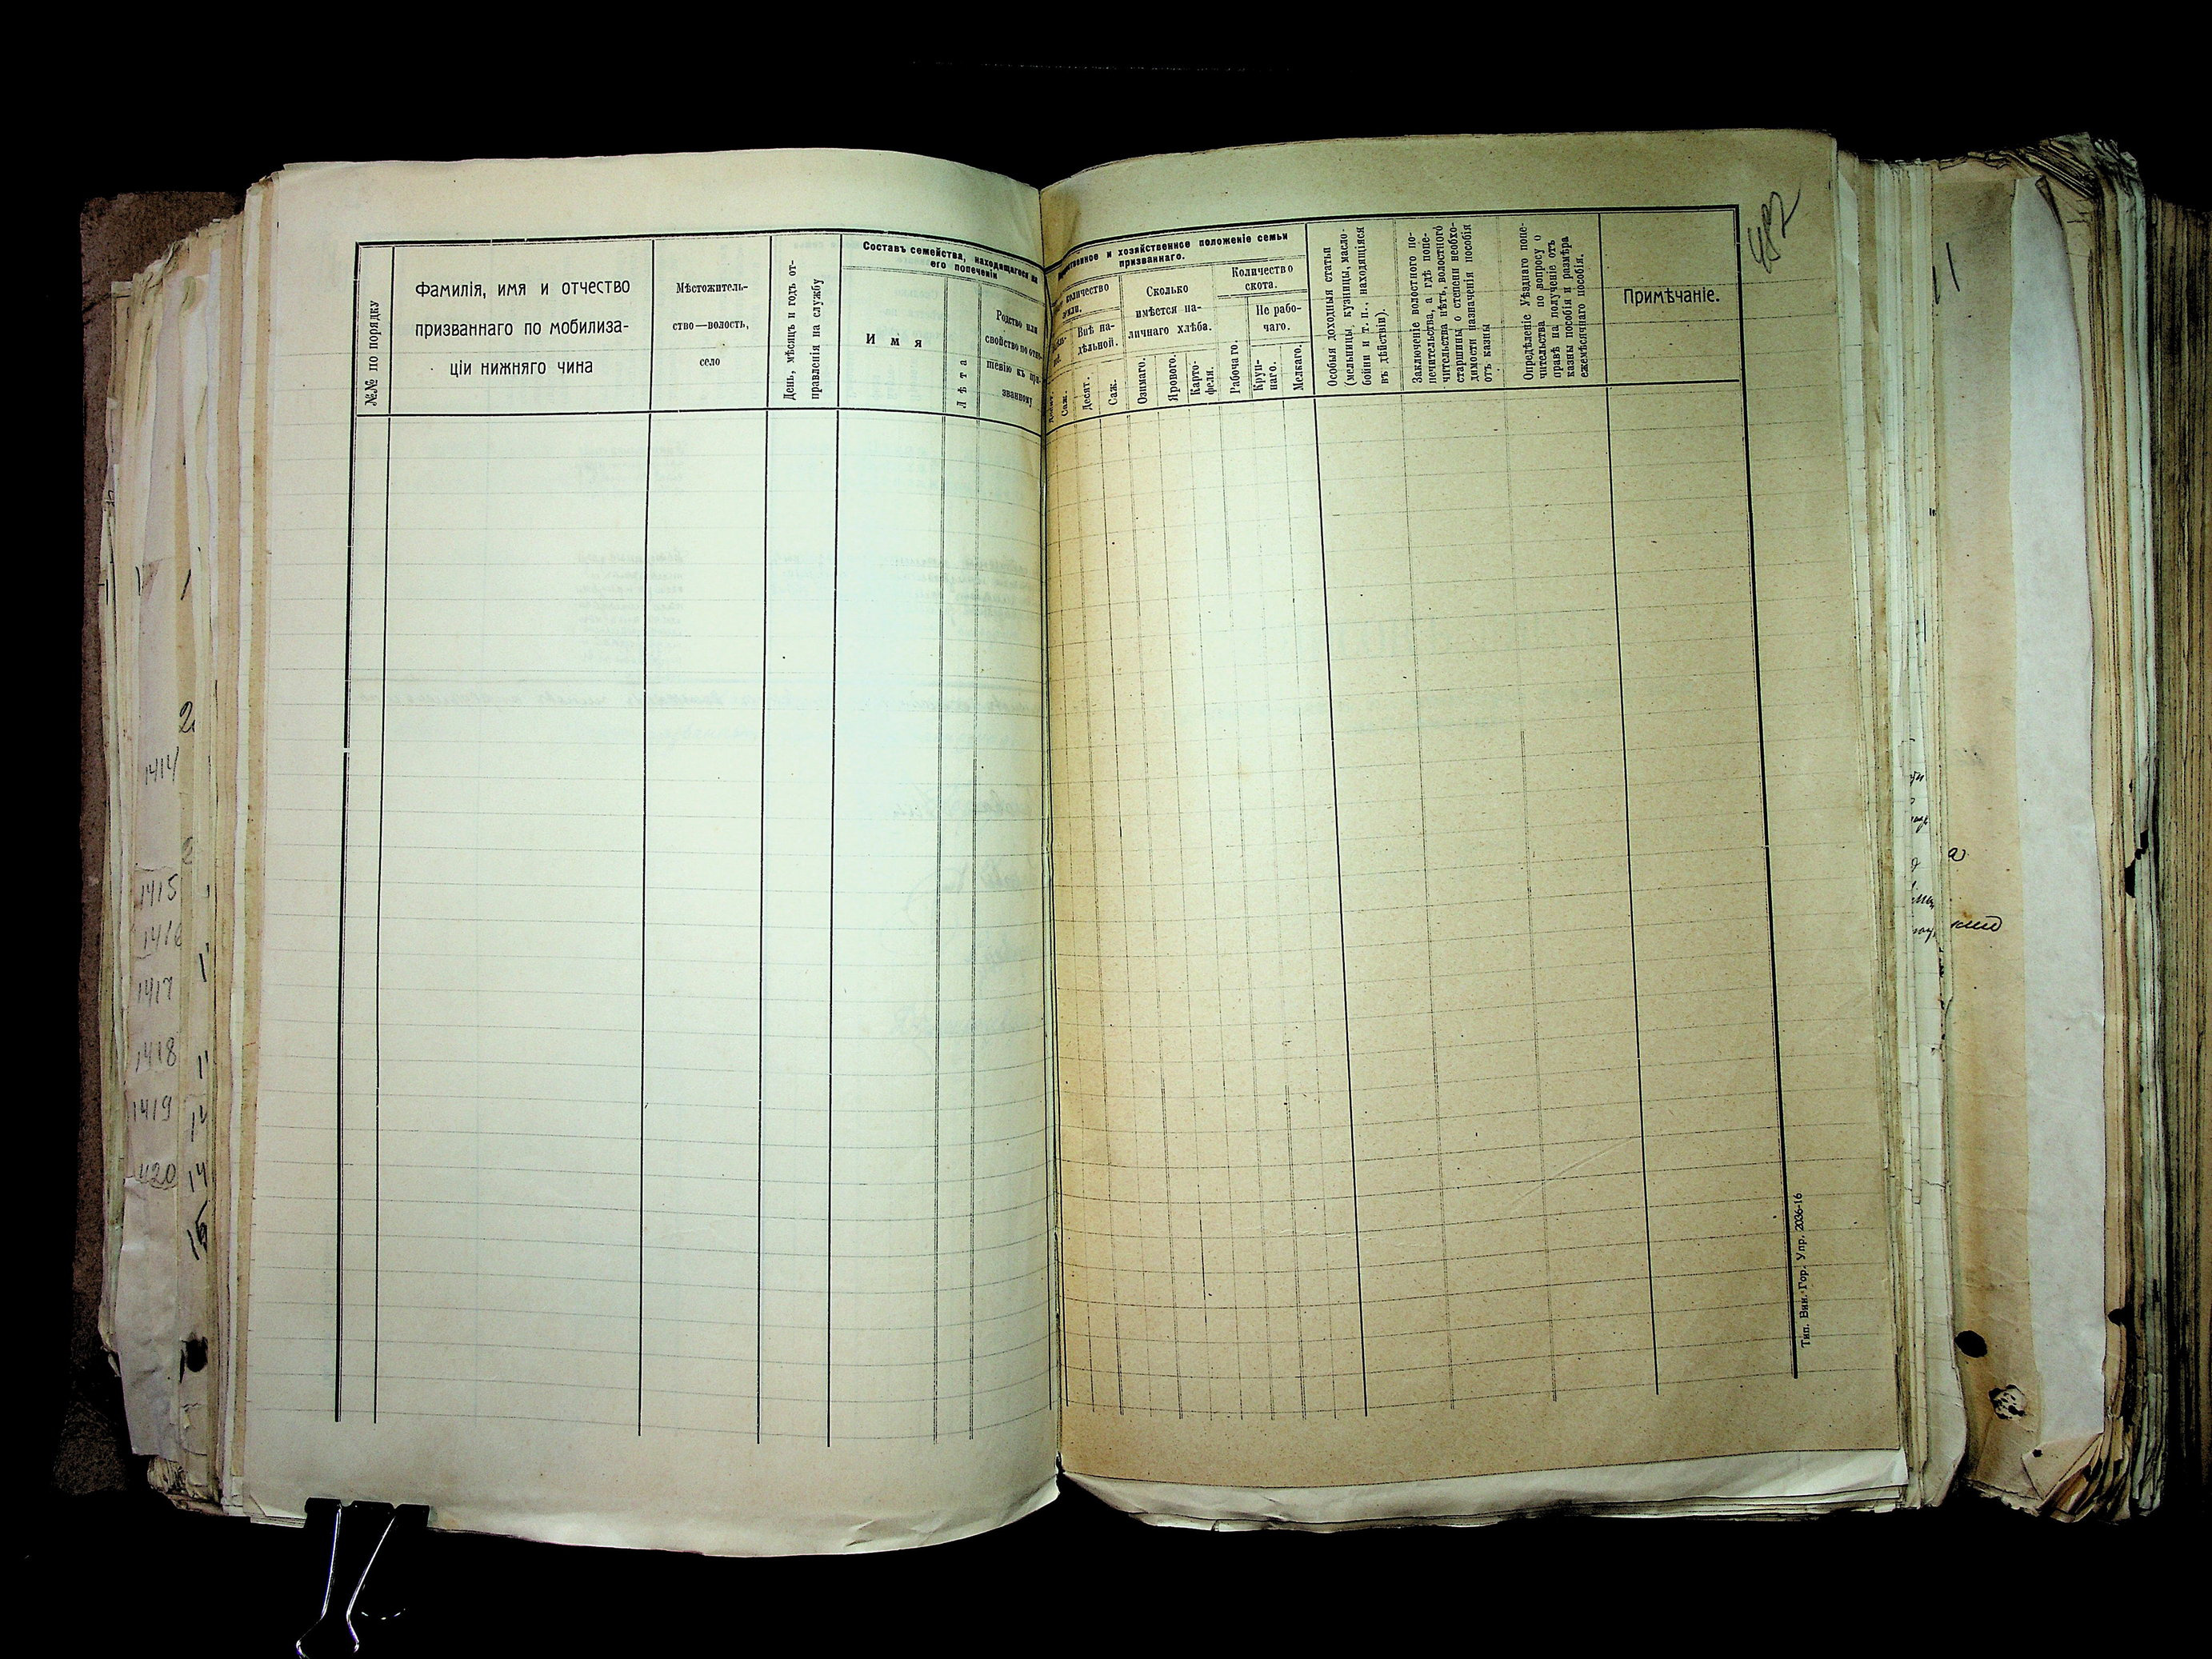 №№ по порядку
Фамилія, имя и отчество
призваннаго по мобилиза-
ціи нижняго чина
Мѣстожитель-
ство—волость,
село
День, мѣсяцъ и годъ от-
правленія на службу
Составъ семейства, находящагося на
его попеченіи
Имя
Лѣта
Родство или
свойство по отно-
шенію къ при-
званному
и хозяйственное положеніе семьи
призваннаго.
количество
земли.
Внѣ на-
дѣльной.
Десят.
Саж.
Десят.
Саж.
Сколько
имѣется на-
личнаго хлѣба.
Озимаго.
Ярового.
Карто-
феля.
Количество
скота.
Рабочаго.
Не рабо-
чаго.
Круп-
наго.
Мелкаго.
Особыя доходныя статьи
(мельницы, кузницы, масло-
бойни и т. п., находящіяся
въ дѣйствіи).
Заключеніе волостного по-
печительства, а гдѣ попе-
чительства нѣтъ, волостного
старшины о степени необхо-
димости назначенія пособія
отъ казны
Опредѣленіе Уѣзднаго попе-
чительства по вопросу о
правѣ на полученіе отъ
казны пособія и размѣра
ежемѣсячнаго пособія.
Примѣчаніе.
Тип. Вин. Гор. Упр. 2036-16
482
1414
1415
1416
1417
1418
1419
420